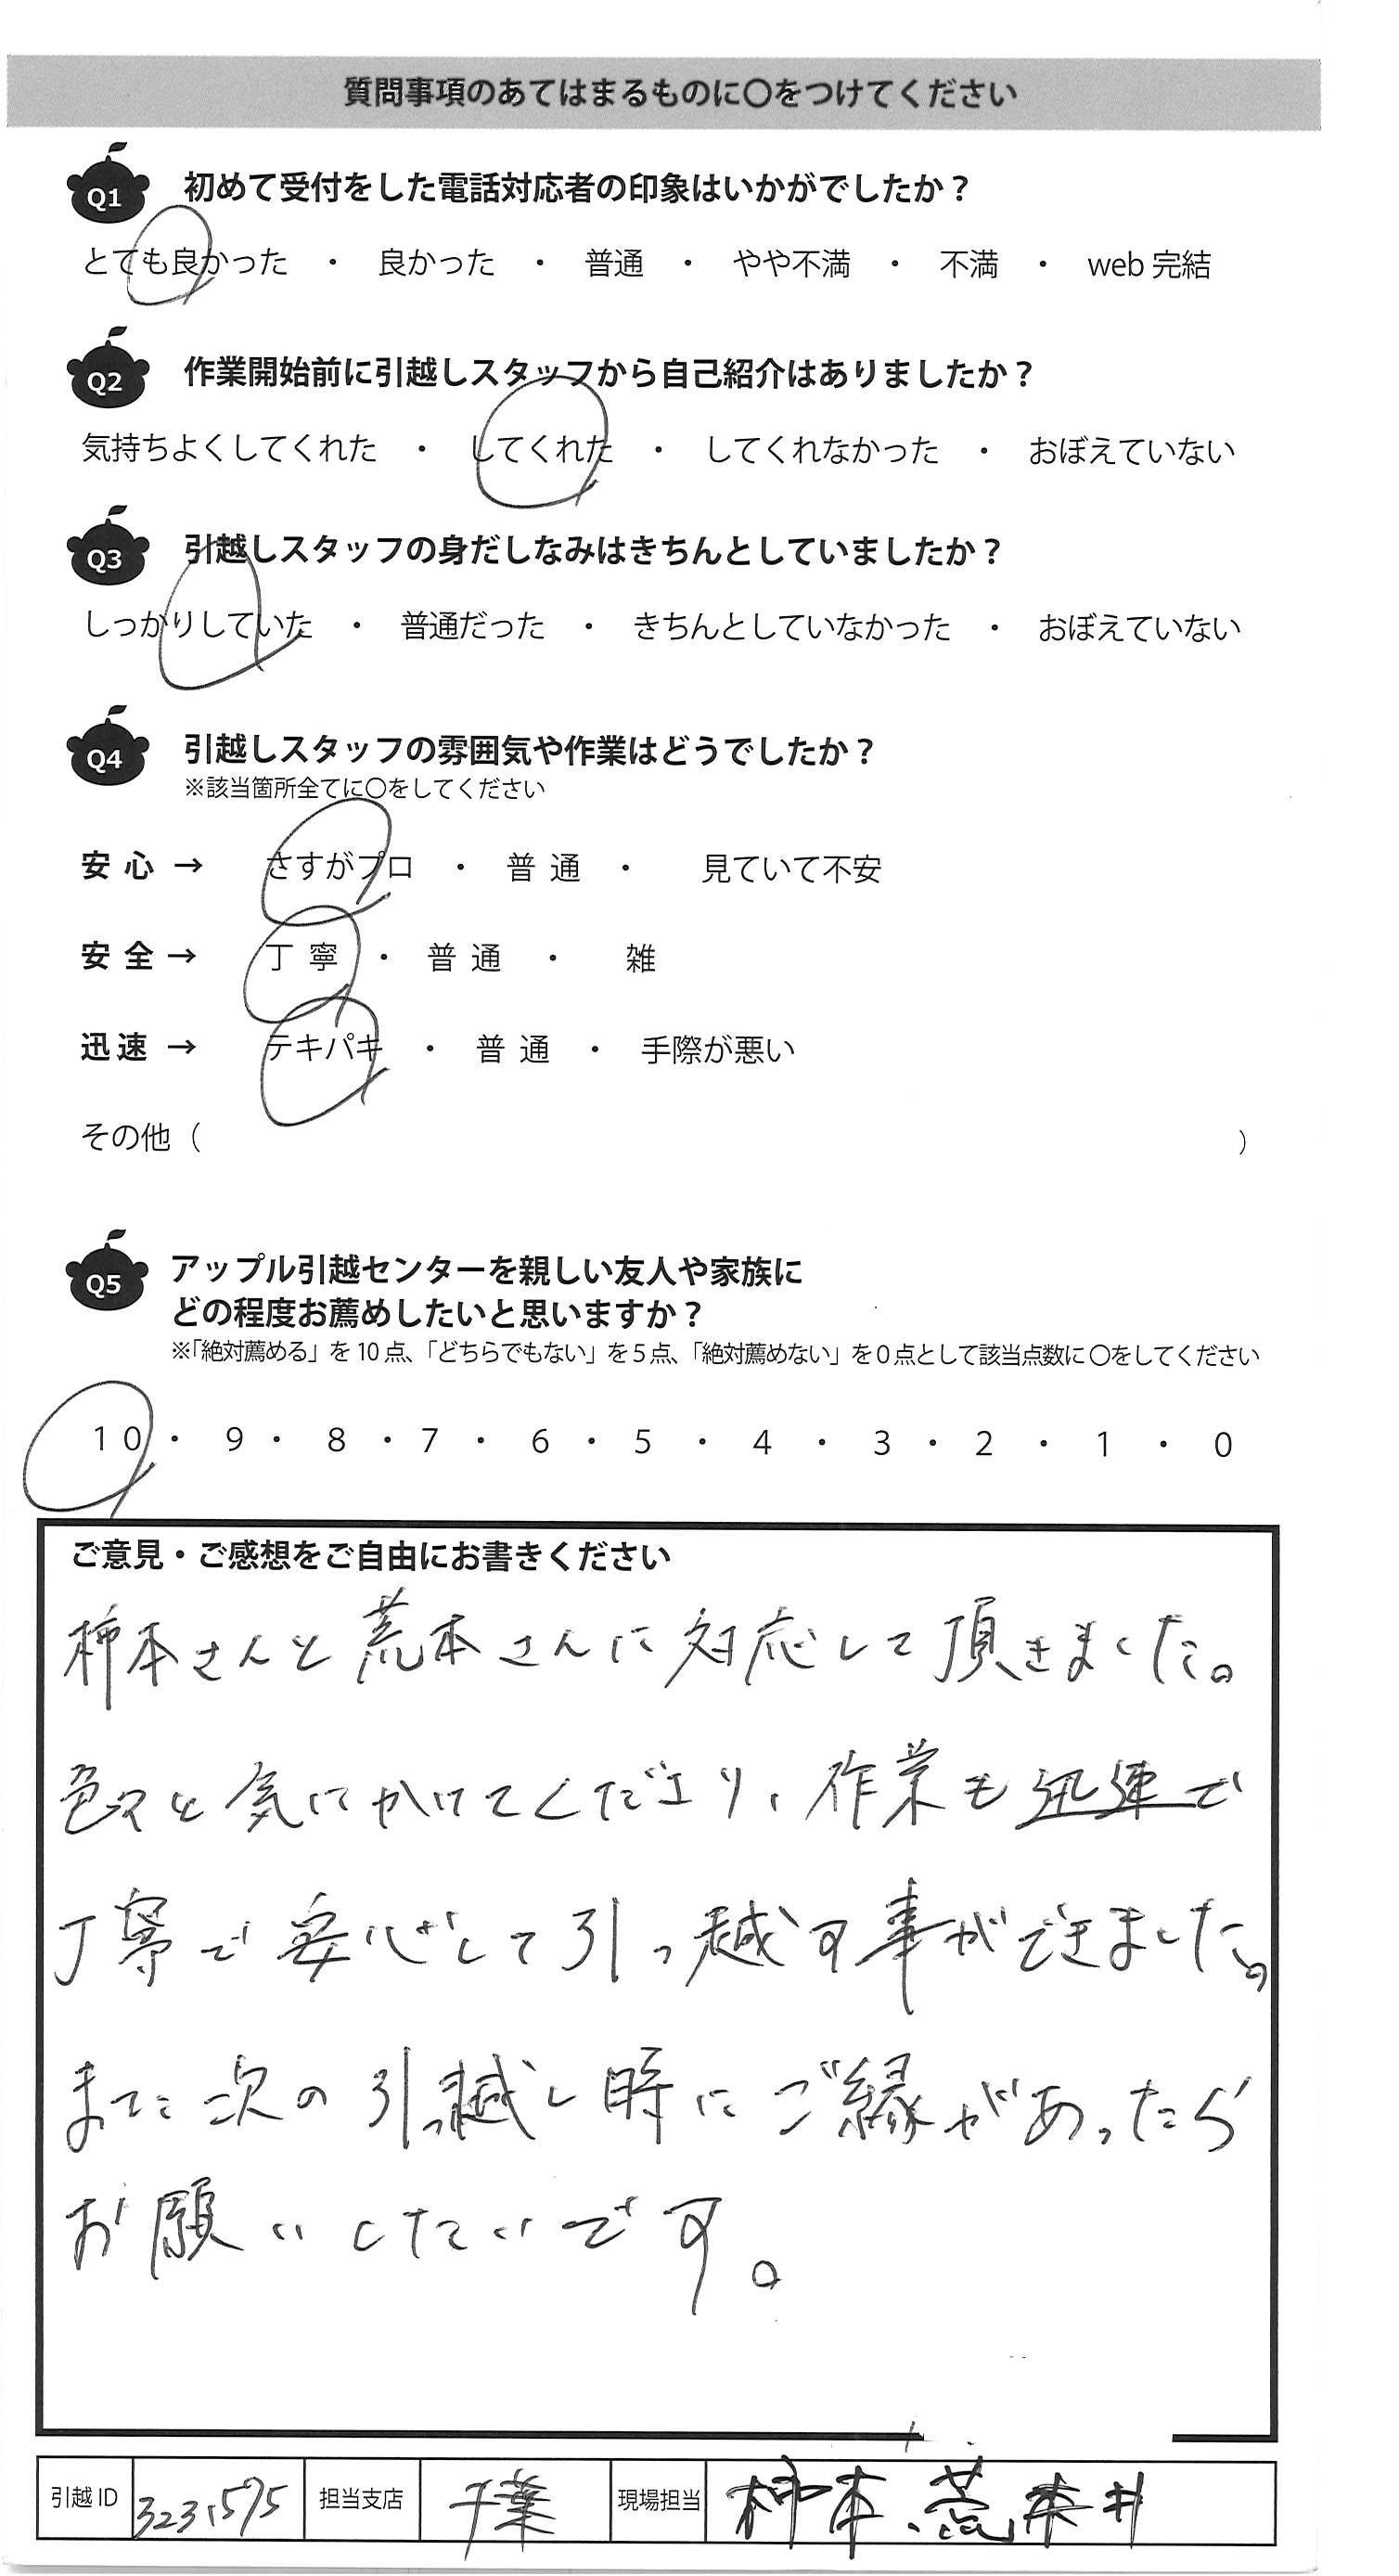 質問事項のあてはまるものに〇をつけてください
Q1 初めて受付をした電話対応者の印象はいかがでしたか？
とても良かった ・ 良かった ・ 普通 ・ やや不満 ・ 不満 ・ web 完結
Q2 作業開始前に引越しスタッフから自己紹介はありましたか？
気持ちよくしてくれた ・ してくれた ・ してくれなかった ・ おぼえていない
Q3 引越しスタッフの身だしなみはきちんとしていましたか？
しっかりしていた ・ 普通だった ・ きちんとしていなかった ・ おぼえていない
Q4 引越しスタッフの雰囲気や作業はどうでしたか？
※該当箇所全てに〇をしてください
安心 → さすがプロ ・ 普通 ・ 見ていて不安
安全 → 丁寧 ・ 普通 ・ 雑
迅速 → テキパキ ・ 普通 ・ 手際が悪い
その他（ ）
Q5 アップル引越センターを親しい友人や家族に
どの程度お薦めしたいと思いますか？
※「絶対薦める」を10点、「どちらでもない」を5点、「絶対薦めない」を0点として該当点数に〇をしてください
10 ・ 9 ・ 8 ・ 7 ・ 6 ・ 5 ・ 4 ・ 3 ・ 2 ・ 1 ・ 0
ご意見・ご感想をご自由にお書きください
柿本さんと荒本さんに対応して頂きました。
色々と気にかけてくださり、作業も迅速で
丁寧で安心して引っ越す事ができました。
また次の引っ越し時にご縁があったら
お願いしたいです。
引越ID 担当支店 千葉 現場担当 柿本、荒